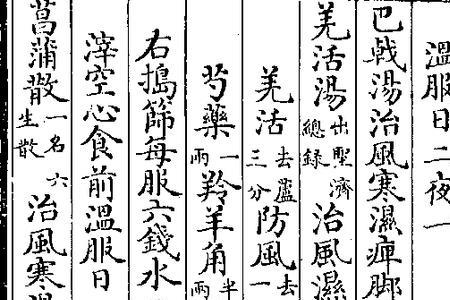 溫服日二夜一
巴戟湯治風寒濕痺脚
羌活湯出聖濟總錄治風濕
羌活去蘆三分防風去一
芍藥一兩羚羊角半兩
右搗篩每服六錢水
滓空心食前溫服日
菖蒲散一名六生散治風寒